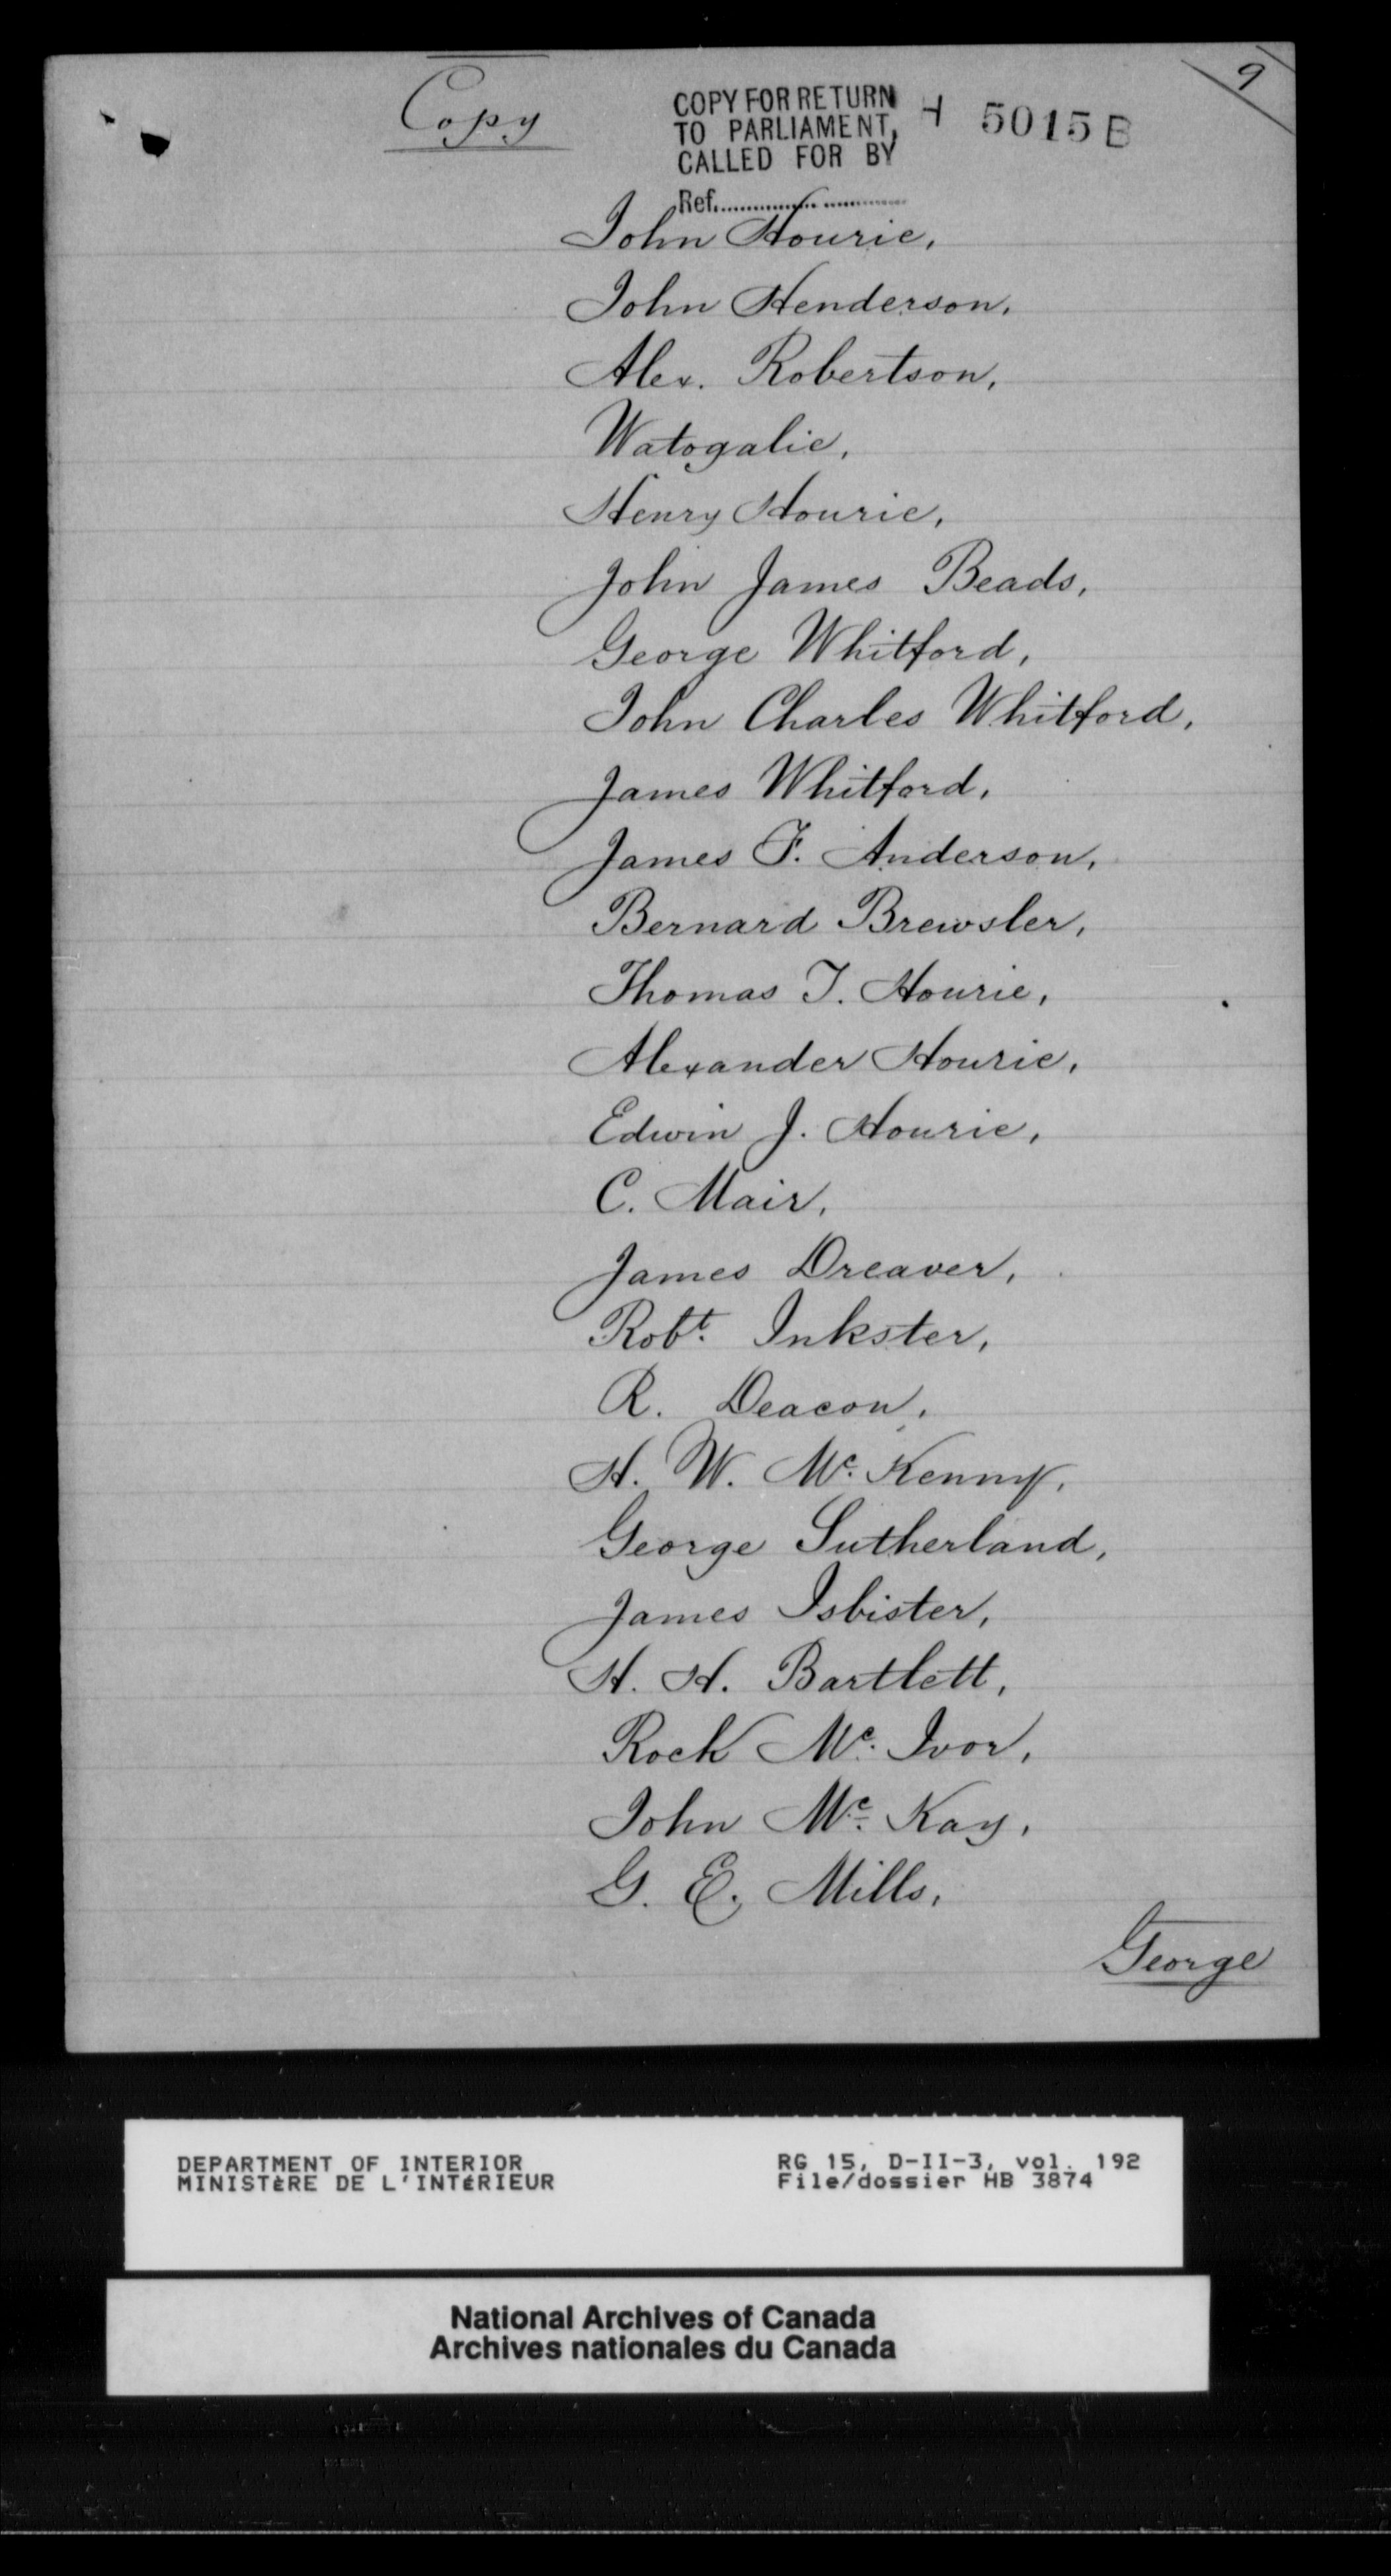 9
Copy
COPY FOR RETURN
TO PARLIAMENT,
CALLED FOR BY
H 5015 B
Ref.
John Hourie,
John Henderson,
Alex. Robertson,
Watogalie,
Henry Hourie,
John James Beads,
George Whitford,
John Charles Whitford,
James Whitford,
James F. Anderson,
Bernard Brewster,
Thomas T. Hourie,
Alexander Hourie,
Edwin J. Hourie,
C. Mair,
James Dreaver,
Robt. Inkster,
R. Deacon,
H. W. Mc. Kenny,
George Sutherland,
James Isbister,
H. H. Bartlett,
Rock Mc. Ivor,
John Mc. Kay,
G. E. Mills,
George
DEPARTMENT OF INTERIOR
MINISTÈRE DE L'INTÉRIEUR
RG 15, D-II-3, vol. 192
File/dossier HB 3874
National Archives of Canada
Archives nationales du Canada